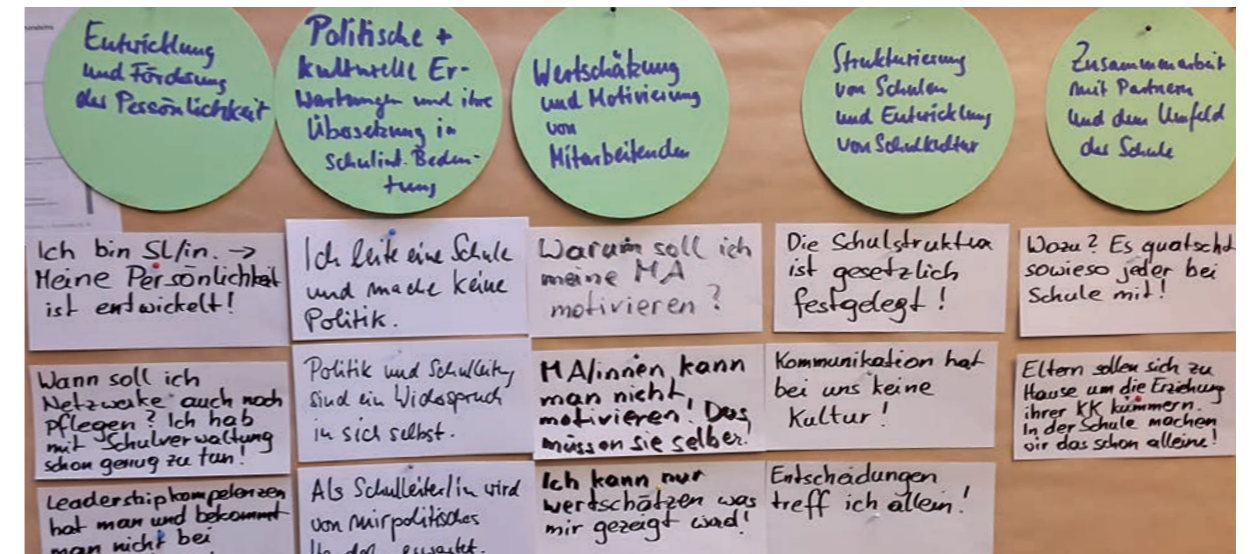 Entwicklung
und Förderung
der Persönlichkeit
Politische +
kulturelle Er-
wartungen und ihre
Übersetzung in
schulint. Bedeu-
tung
Wertschätzung
und Motivierung
von
Mitarbeitenden
Strukturierung
von Schulen
und Entwicklung
von Schulkultur
Zusammenarbeit
mit Partnern
und dem Umfeld
der Schule
Ich bin SL/in. →
Meine Persönlichkeit
ist entwickelt!
Wann soll ich
Netzwerke auch noch
pflegen? Ich hab
mit Schulverwaltung
schon genug zu tun!
Leadershipkompetenzen
hat man und bekommt
man nicht bei
Ich leite eine Schule
und mache keine
Politik.
Politik und Schulleitung
sind ein Widerspruch
in sich selbst.
Als Schulleiter/in wird
von mir politisches
erwartet.
Warum soll ich
meine MA
motivieren?
MA/innen kann
man nicht
motivieren! Das
müssen sie selber.
Ich kann nur
wertschätzen was
mir gezeigt wird!
Die Schulstruktur
ist gesetzlich
festgelegt!
Kommunikation hat
bei uns keine
Kultur!
Entscheidungen
treff ich allein!
Wozu? Es quatscht
sowieso jeder bei
Schule mit!
Eltern sollen sich zu
Hause um die Erziehung
ihrer KK kümmern.
In der Schule machen
wir das schon alleine!